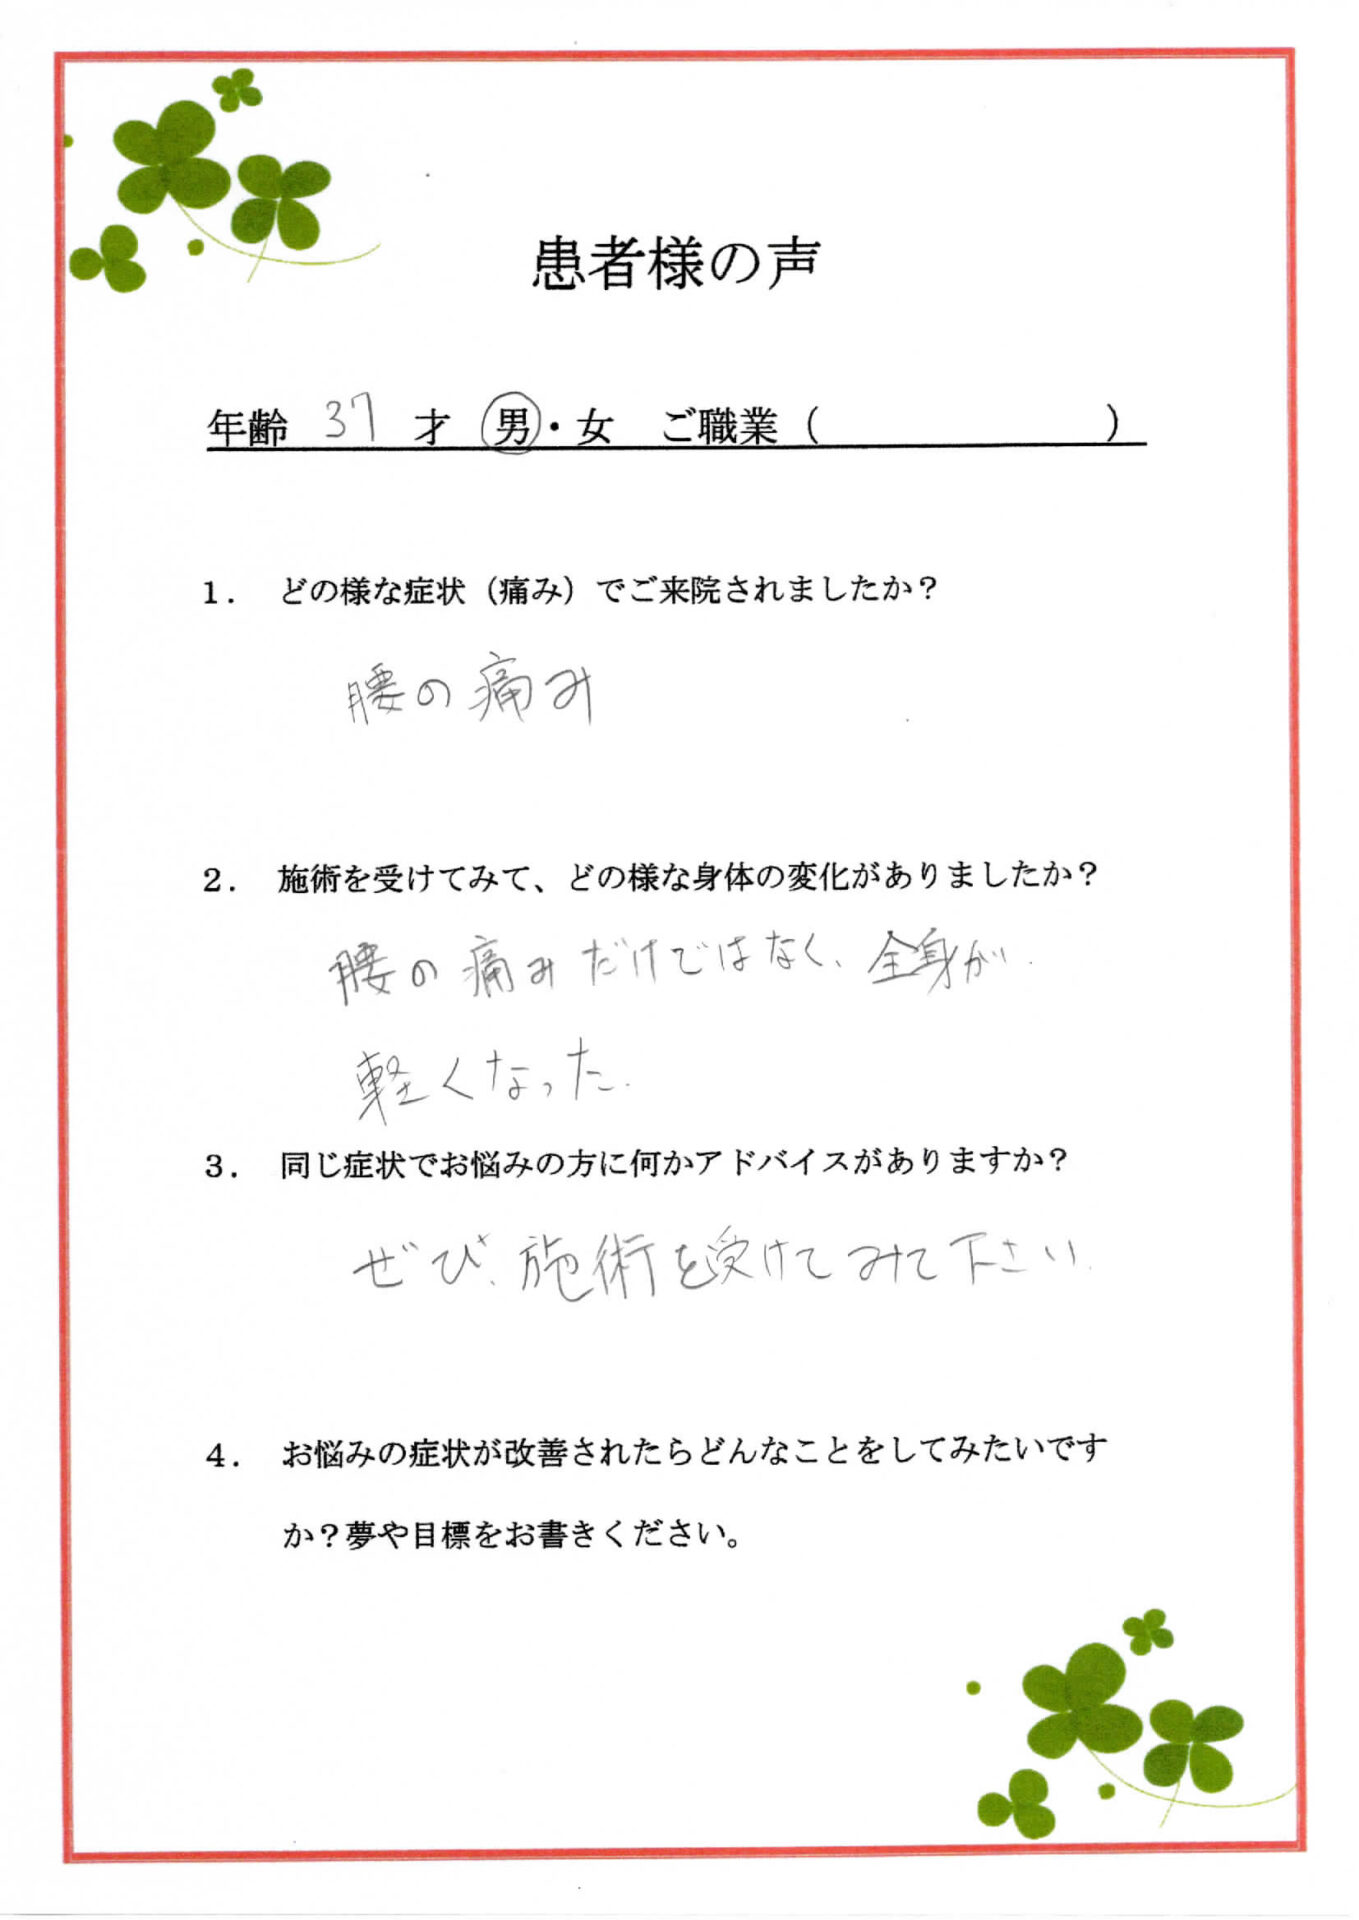 患者様の声
年齢 37 才 男・女 ご職業（ ）
１． どの様な症状（痛み）でご来院されましたか？
腰の痛み
２． 施術を受けてみて、どの様な身体の変化がありましたか？
腰の痛みだけではなく、全身が
軽くなった.
３． 同じ症状でお悩みの方に何かアドバイスがありますか？
ぜひ、施術を受けてみて下さい.
４． お悩みの症状が改善されたらどんなことをしてみたいです
か？夢や目標をお書きください。